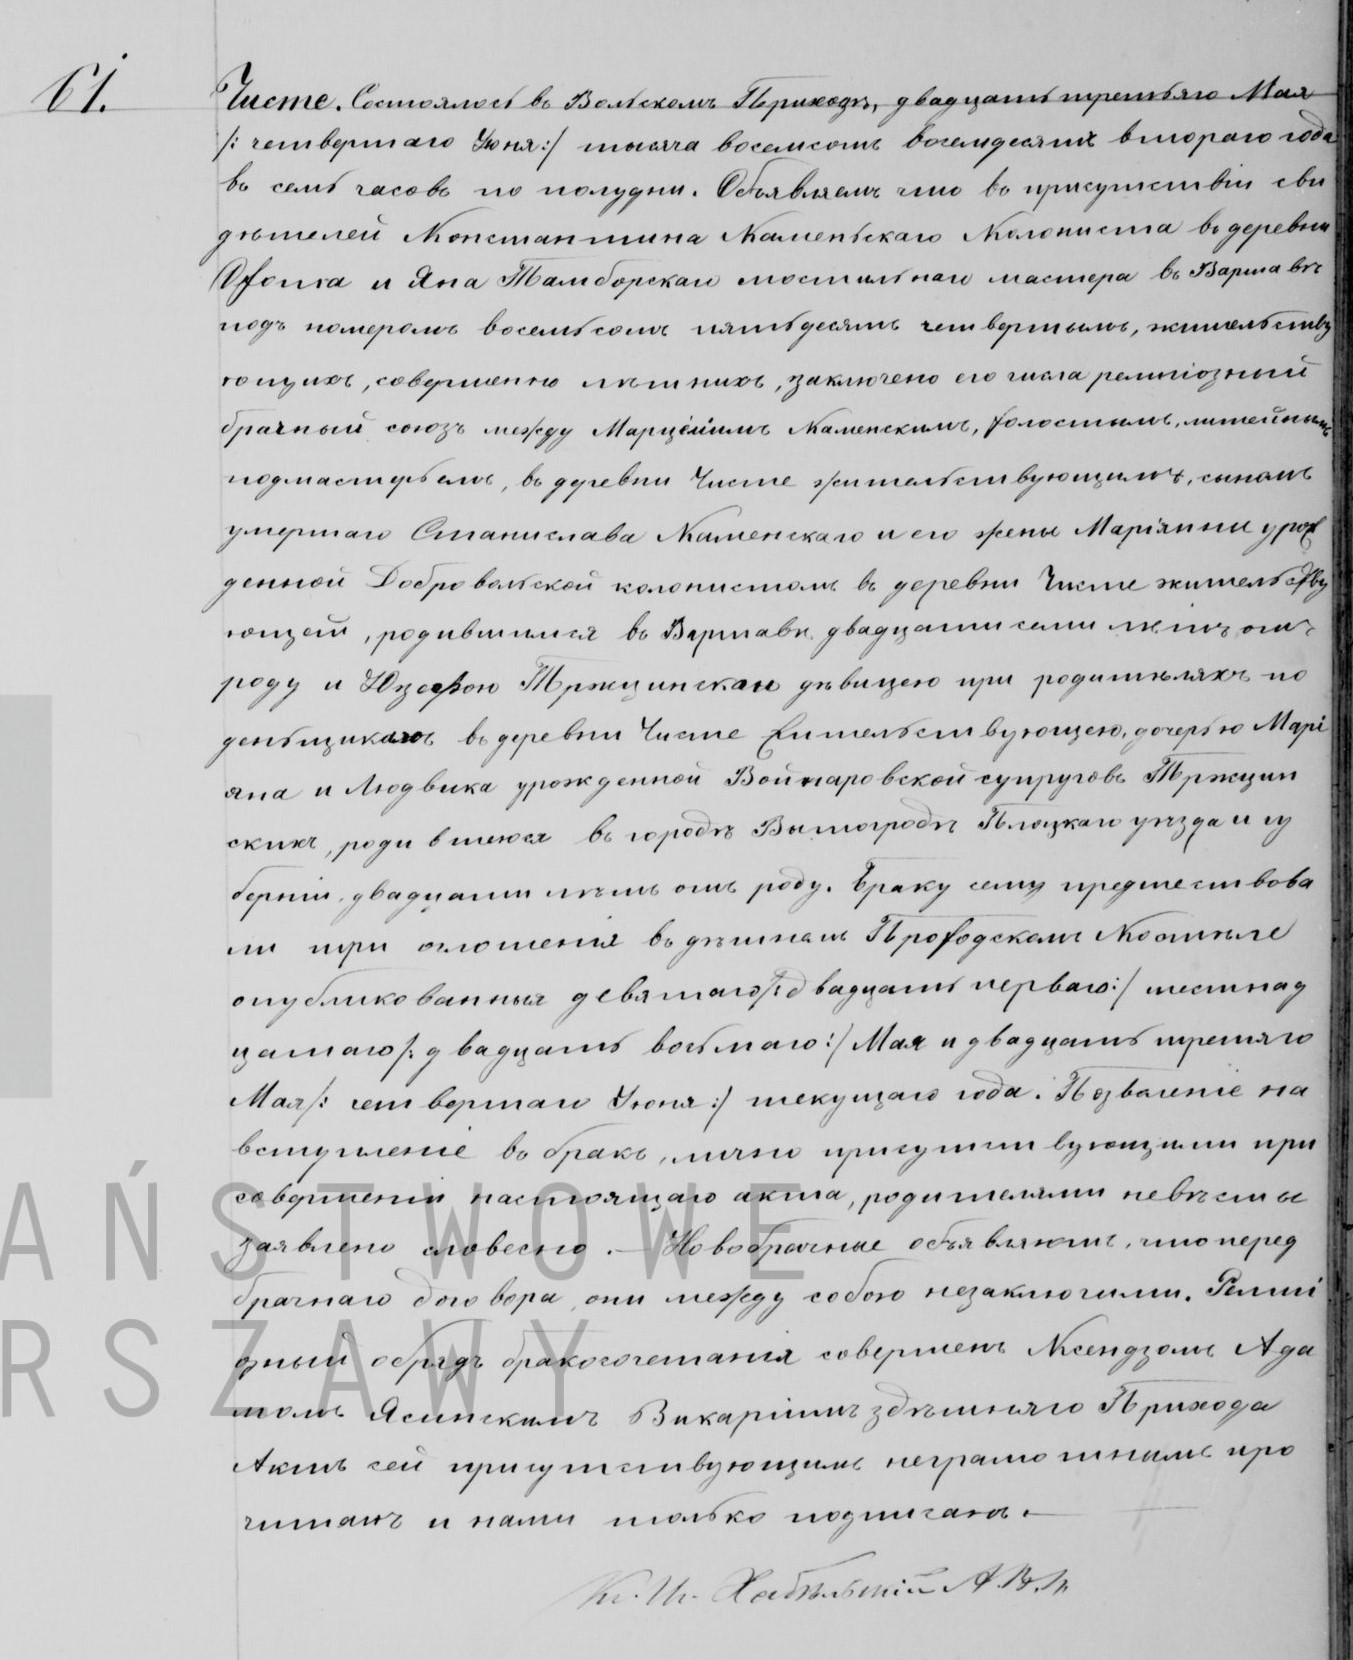 61.
Чисте. Состоялось въ Вольскомъ Приходѣ, двадцать третьяго Мая
/: четвертаго Іюня:/ тысяча восемсотъ восемдесятъ втораго года
въ семь часовъ по полудни. Объявляемъ что въ присутствіи сви
дѣтелей Константина Каменьскаго Колониста въ деревни
и Яна Тамборскаго мастера въ Варшавѣ
подъ номеромъ восемьсотъ пятьдесятъ четвертымъ, жительству
ющихъ, совершенно лѣтнихъ, заключено его числа религіозный
брачный союзъ между Каменскимъ, холостымъ, литейнымъ
подмастерьемъ, въ деревни Чисте жительствующимъ, сыномъ
умершаго Станислава Каменскаго и его жены Маріянны урож
денной Добровольской колонистомъ въ деревни Чисте жительству
ющей, родившимся въ Варшавѣ двадцати семи лѣтъ отъ
роду и Юзефою Тржцинскою дѣвицею при родителяхъ по
деньщикахъ въ деревни Чисте жительствующею, дочерью Марі
яна и Людвика урожденной Войнаровской супруговъ Тржцин
скихъ, родившеюся въ городѣ Вышогродѣ Плоцкаго уѣзда и гу
берніи, двадцати лѣтъ отъ роду. Браку сему предшествова
ли три оглошенія въ здѣшнемъ Приходскомъ Костеле
опубликованныя девятаго/: двадцать перваго:/ шестнад
цатаго/: двадцать восьмаго:/ Мая и двадцать третяго
Мая/: четвертаго Іюня:/ текущаго года. Позволеніе на
вступленіе въ бракъ, лично присутствующими при
совершеніи настоящаго акта, родителями невѣсты
заявлено словесно. — Новобрачные объявляютъ, что перед
брачнаго договора, они между собою незаключили. Религі
озный обрядъ бракосочетанія совершенъ Ксендзомъ Ада
момъ Ясинскимъ Викаріимъ здѣшняго Прихода
Актъ сей присутствующимъ неграмотнымъ про
читанъ и нами только подписанъ. —
ПАŃSTWOWE
RSZAWY